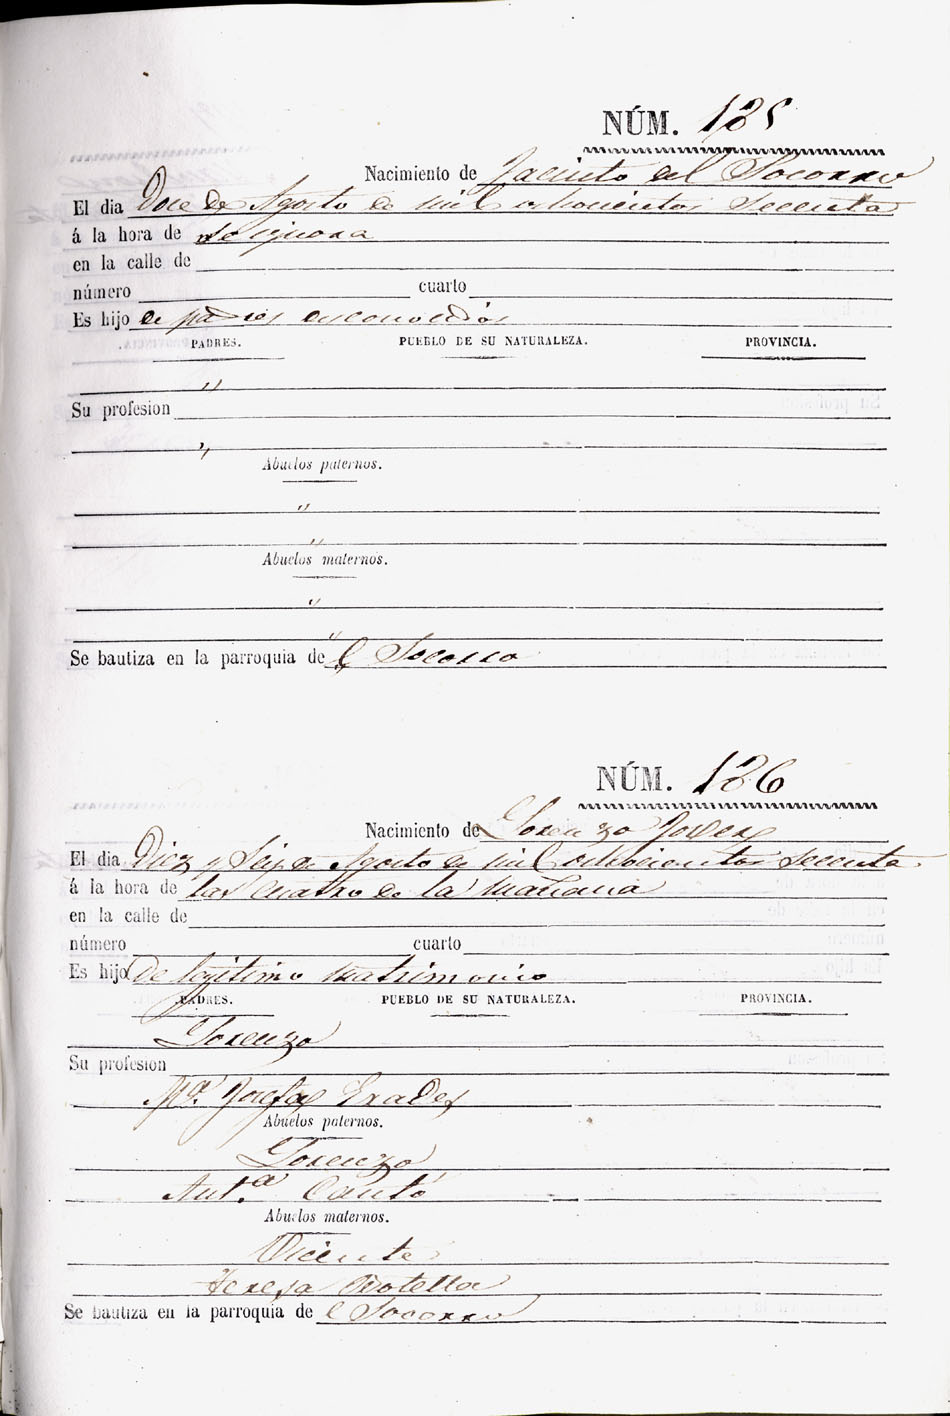 NÚM. 185
Nacimiento de Jacinto del Socorro
El dia Doce de Agosto de mil ochocientos secenta
á la hora de se ignora
en la calle de
número cuarto
Es hijo de padres desconocidos
PADRES. PUEBLO DE SU NATURALEZA. PROVINCIA.
"
Su profesion
"
Abuelos paternos.
"
"
Abuelos maternos.
"
"
Se bautiza en la parroquia de l Socorro
NÚM. 186
Nacimiento de Lorenzo Jover
El dia Diez y Seis de Agosto de mil ochocientos secenta
á la hora de las cuatro de la mañana
en la calle de
número cuarto
Es hijo De legitimo matrimonio
PADRES. PUEBLO DE SU NATURALEZA. PROVINCIA.
Lorenzo
Su profesion
Mª. Josefa Erades
Abuelos paternos.
Lorenzo
Ant.ª Cantó
Abuelos maternos.
Vicente
Teresa Botella
Se bautiza en la parroquia de l Socorro